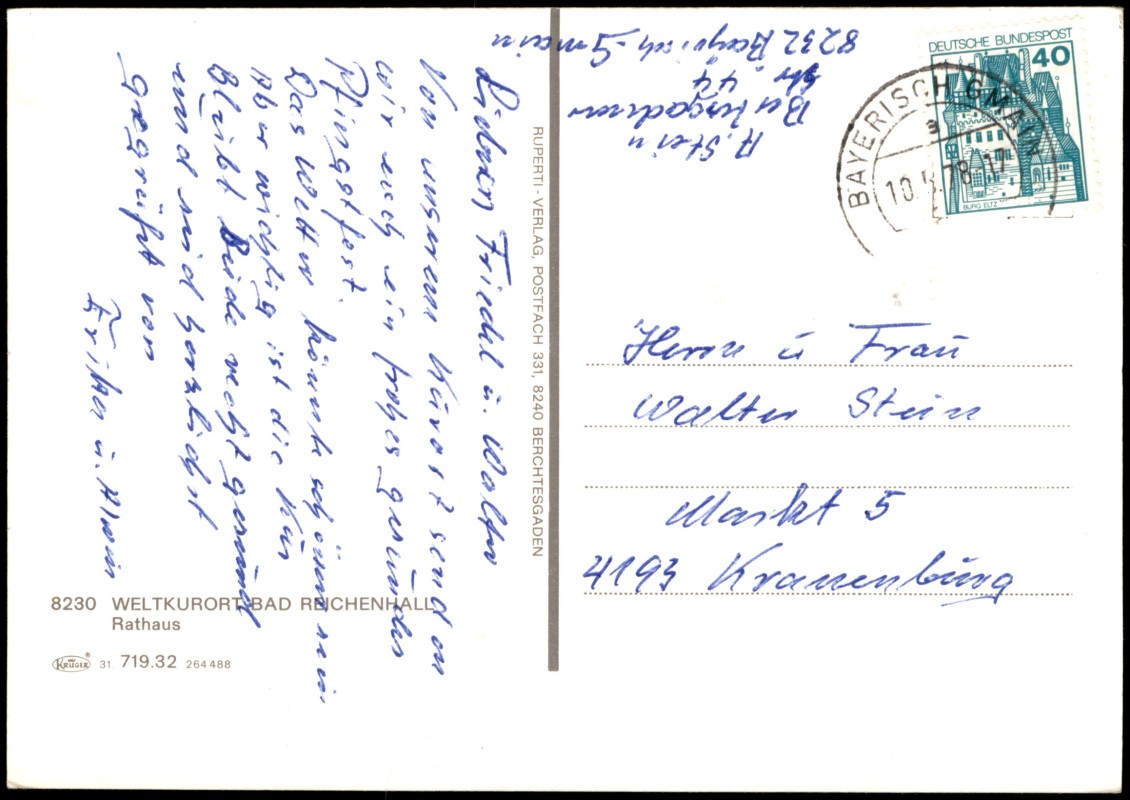 Lieben Friedel u. Walter
Von unserem Kurort senden
wir euch ein frohes gesundes
Pfingstfest.
Das Wetter könnte schöner sein
Aber wichtig ist die Kur
Bleibt Beide recht gesund
und seid herzlichst
gegrüßt von
u. Alwin
8230 WELTKURORT BAD REICHENHALL
Rathaus
KRÜGER 31. 719.32 264488
RUPERTI-VERLAG, POSTFACH 331, 8240 BERCHTESGADEN
A. Stein
Str. 44
8232 Bayrisch-Gmain
DEUTSCHE BUNDESPOST
40
BURG ELTZ
BAYERISCH GMAIN
a
10.5.78-17
Herrn u Frau
Walter Stein
Markt 5
4193 Kranenburg